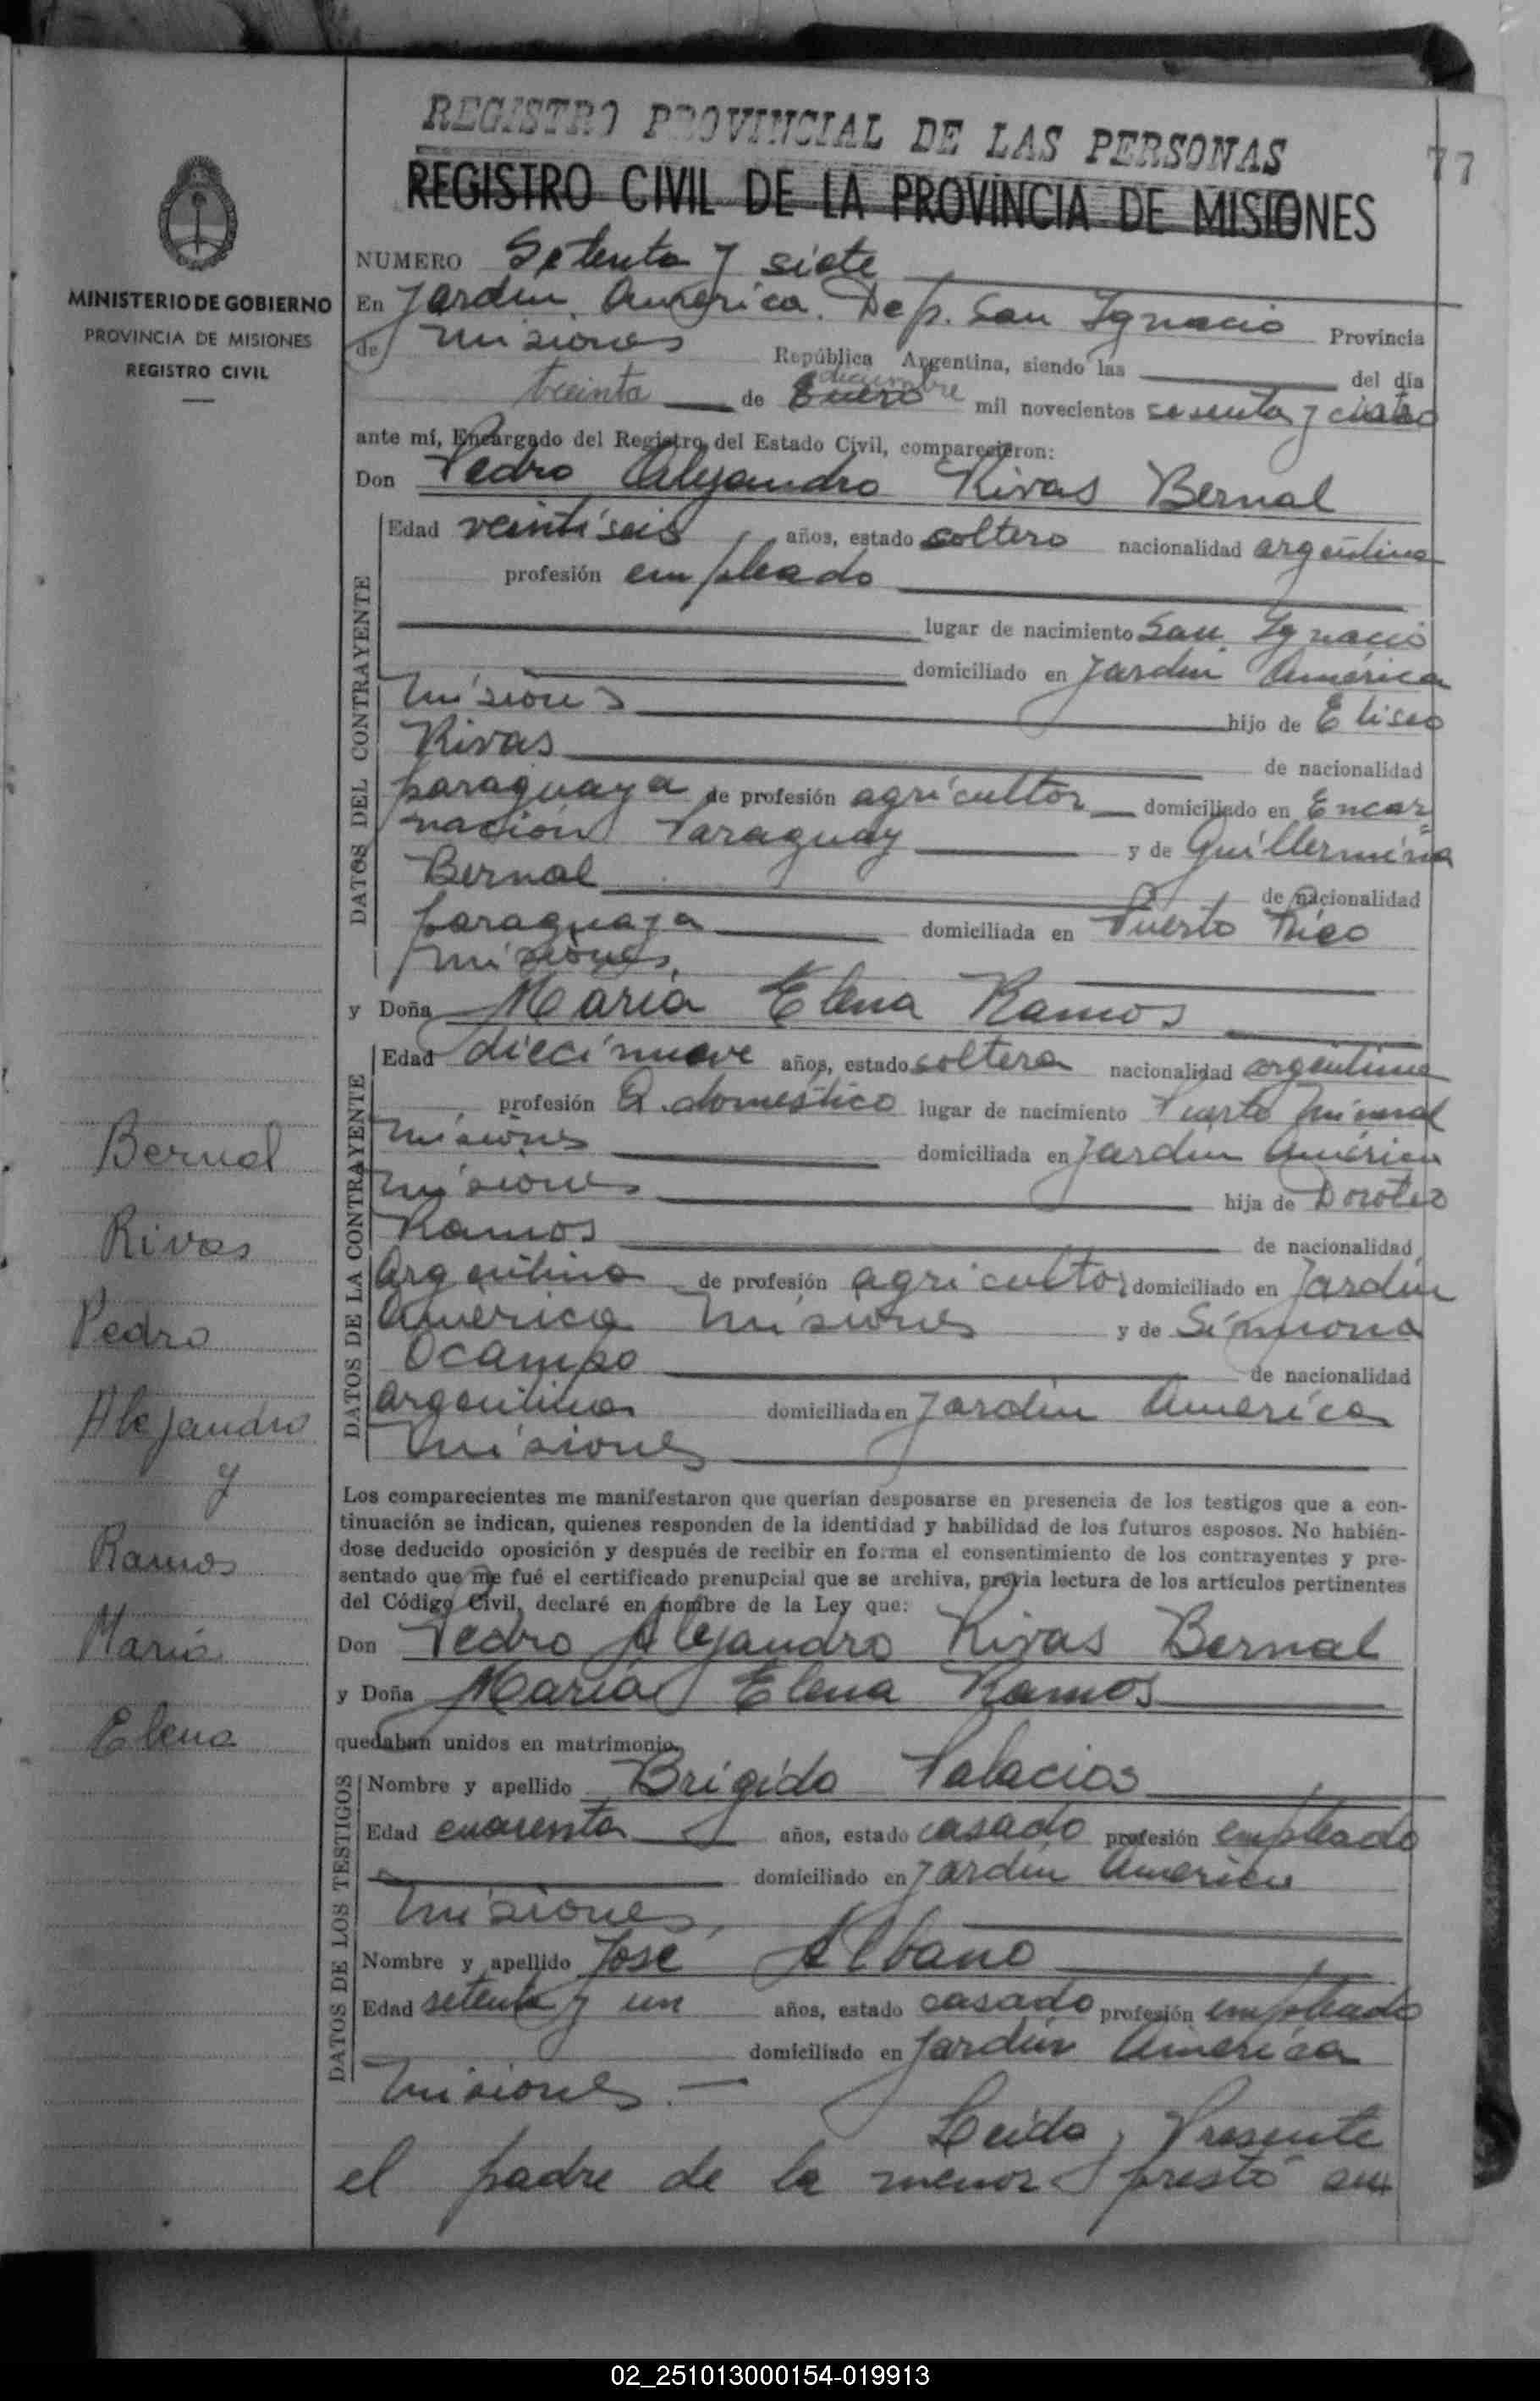 REGISTRO PROVINCIAL DE LAS PERSONAS
77
REGISTRO CIVIL DE LA PROVINCIA DE MISIONES
MINISTERIO DE GOBIERNO
PROVINCIA DE MISIONES
REGISTRO CIVIL
NUMERO Setenta y siete
En Jardín América. Dep. San Ignacio Provincia
de Misiones República Argentina, siendo las del día
diciembre
treinta de Enero mil novecientos sesenta y cuatro
ante mí, Encargado del Registro del Estado Civil, comparecieron:
Don Pedro Alejandro Rivas Bernal
DATOS DEL CONTRAYENTE
Edad veintiseis años, estado soltero nacionalidad argentina
profesión empleado
lugar de nacimiento San Ignacio
domiciliado en Jardín América
Misiones hijo de Eliseo
Rivas de nacionalidad
paraguaya de profesión agricultor domiciliado en Encar=
nación Paraguay y de Guillermina
Bernal de nacionalidad
paraguaya domiciliada en Puerto Rico
Misiones.
y Doña María Elena Ramos
DATOS DE LA CONTRAYENTE
Edad diecinueve años, estado soltera nacionalidad argentina
profesión Q. domestico lugar de nacimiento Puerto Mineral
Misiones domiciliada en Jardín América
Misiones hija de Doroteo
Ramos de nacionalidad
Argentino de profesión agricultor domiciliado en Jardín
América Misiones y de Simmona
Ocampo de nacionalidad
argentina domiciliada en Jardín América
Misiones
Bernal
Rivas
Pedro
Alejandro
y
Ramos
María
Elena
Los comparecientes me manifestaron que querían desposarse en presencia de los testigos que a con-
tinuación se indican, quienes responden de la identidad y habilidad de los futuros esposos. No habién-
dose deducido oposición y después de recibir en forma el consentimiento de los contrayentes y pre-
sentado que me fué el certificado prenupcial que se archiva, previa lectura de los artículos pertinentes
del Código Civil, declaré en nombre de la Ley que:
Don Pedro Alejandro Rivas Bernal
y Doña María Elena Ramos
quedaban unidos en matrimonio.
DATOS DE LOS TESTIGOS
Nombre y apellido Brígido Palacios
Edad cuarenta años, estado casado profesión empleado
domiciliado en Jardín América
Misiones
Nombre y apellido José Albano
Edad setenta y un años, estado casado profesión empleado
domiciliado en Jardín América
Misiones. —
Leida, Presente
el padre de la menor prestó su
02_251013000154-019913